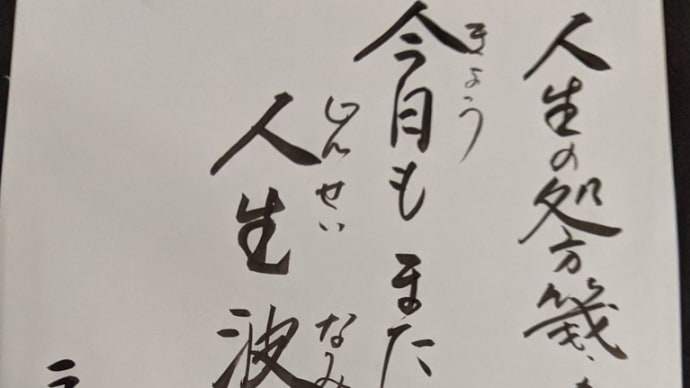 人生の処方箋
きょう
今日もまた
じんせい なみ
人生波